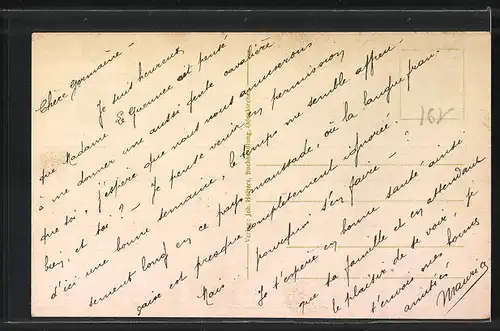 Chère Germaine -
Je suis heureux
que Madame Le Quennec ait pensé
à me donner une aussi gente cavalière
que toi, j'espère que nous nous amuserons
bien, et toi ? - Je pense venir en permission
d'ici une bonne semaine, le temps me semble affreu-
sement long en ce pays maussade, où la langue fran-
çaise est presque complètement ignorée.
Mais pourquoi s'en faire - ?
Je t'espère en bonne santé ainsi
que ta famille et en attendant
le plaisir de te voir, je
t'envoie mes bonnes
amitiés
Maurice
162
Verlag: Joh. Buchhandlung,